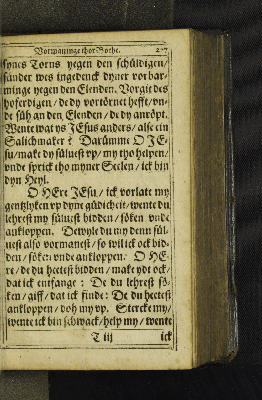 Vorwaninge thor Bothe. 207
synes Torns yegen den schüldigen/
sunder wes ingedenck dyner vor bar-
minge yegen den Elenden. Vorgit des
hoferdigen/ de dy vortörnet hefft/ vn-
de süh an den Elenden/ de dy anröpt.
Wente wat ys JEsus anders/ alse ein
Salichmaker? Darümme O JE-
su/ make dy süluest vp/ my tho helpen/
vnde sprick tho myner Seelen/ ick bin
dyn Heyl.
O HEre JEsu/ ick vorlate my
gentzlyken vp dyne güdicheit/ wente du
lehrest my süluest bidden/ söken vnde
ankloppen. Dewyle du my denn sül-
uest also vormanest/ so wil ick ock bid-
den/ söken vnde ankloppen. O HE-
re/ de du heetest bidden/ make ydt ock/
dat ick entfange: De du lehrest sö-
ken/ giff/ dat ick finde: De du heetest
ankloppen/ doh my vp. Stercke my/
wente ick bin schwack/ help my/ wente
T iij ick